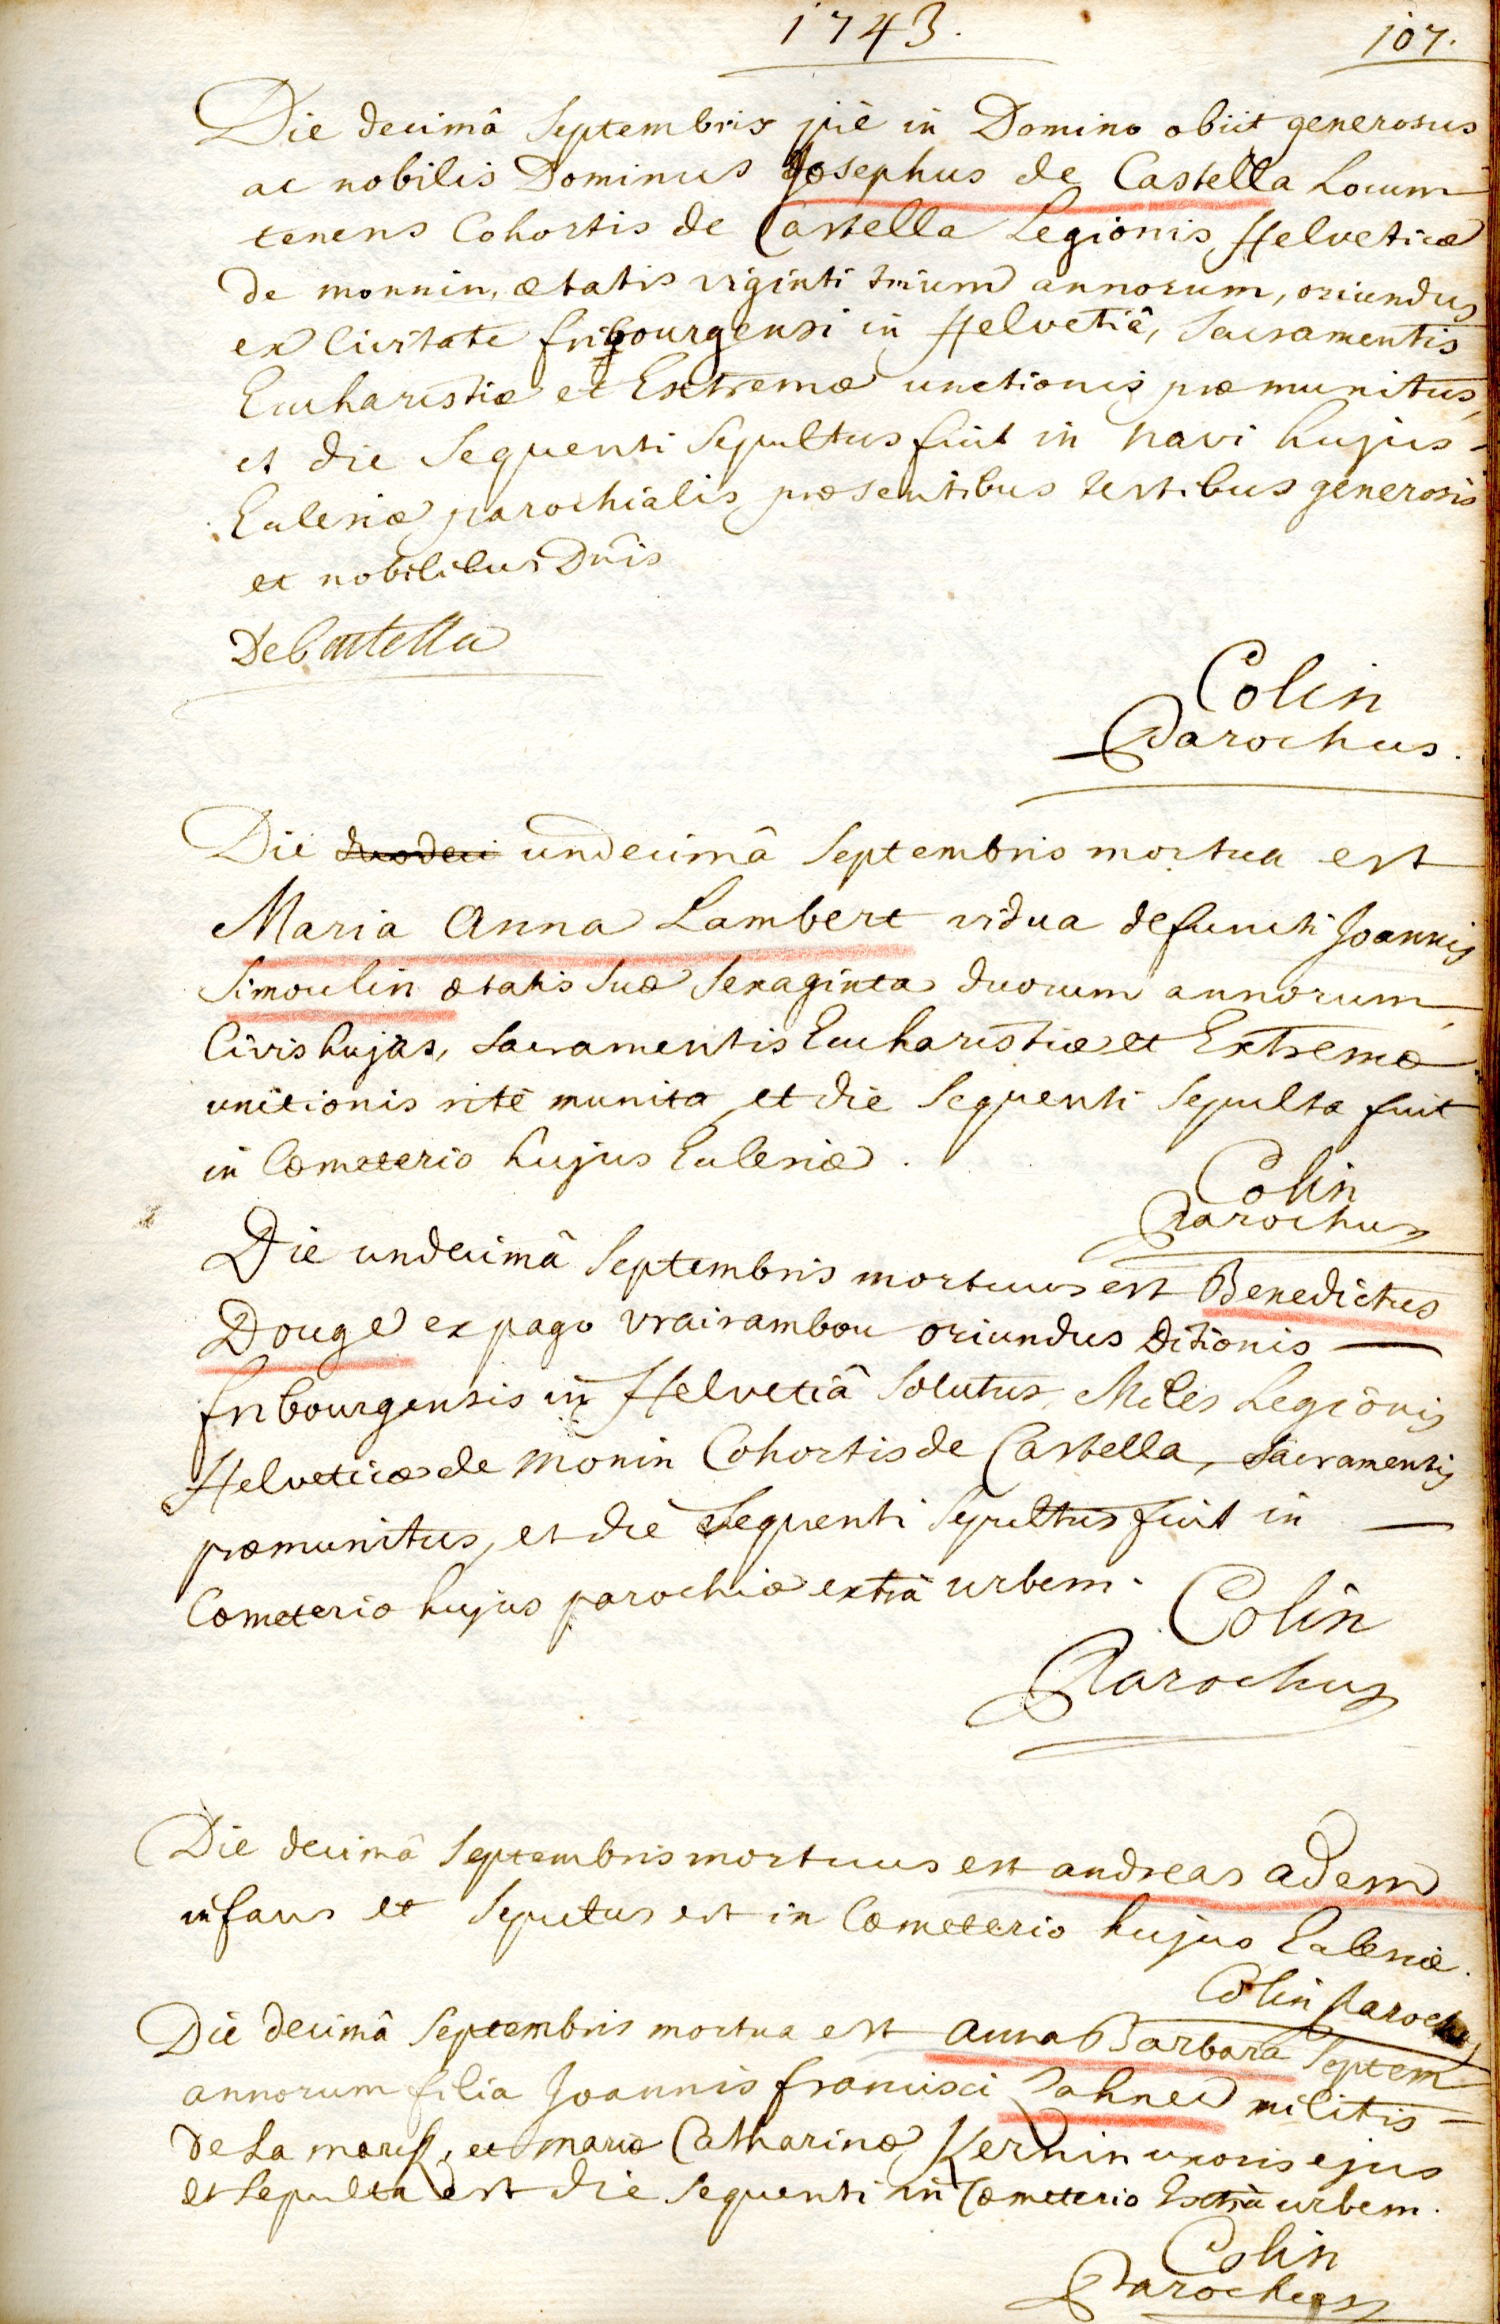 1743.
107.
Die decimâ Septembris piè in Domino obiit generosus
ac nobilis Dominus Josephus de Castella Locum
tenens Cohortis de Castella Legionis Helveticæ
de monnin, ætatis viginti trium annorum, oriundus
ex Civitate fribourgensi in Helvetiâ, Sacramentis
Eucharistiæ et Extremæ unctionis præmunitus,
et die Sequenti Sepultus fuit in navi hujus
Ecclesiæ parochialis præsentibus testibus generosis
et nobilibus Dnis
DeCastella
Colin
Parochus.
Die duodeci undecimâ Septembris mortua est
Maria Anna Lambert vidua defuncti Joannis
Simoulin ætatis suæ Sexaginta duorum annorum
Civis hujus, Sacramentis Eucharistiæ et Extremæ
unctionis ritè munita et die Sequenti Sepulta fuit
in Cœmeterio hujus Ecclesiæ.
Colin
Parochus
Die undecimâ Septembris mortuus est Benedictus
Douge ex pago vrairambou oriundus Ditionis
fribourgensis in Helvetiâ Solutus, Miles Legionis
Helveticæ de Monin Cohortis de Castella, Sacramentis
præmunitus, et die Sequenti Sepultus fuit in
Cœmeterio hujus parochiæ extrà urbem.
Colin
Parochus
Die decimâ Septembris mortuus est andreas adem
infans et Sepultus est in Cœmeterio hujus Ecclesiæ.
Colin Parochus
Die decimâ Septembris mortua est anna Barbara Septem
annorum filia Joannis francisci Sahner militis
de La et mariæ Catharinæ Kernin uxoris ejus
et Sepulta est die Sequenti in Cœmeterio Extrà urbem.
Colin
Parochus